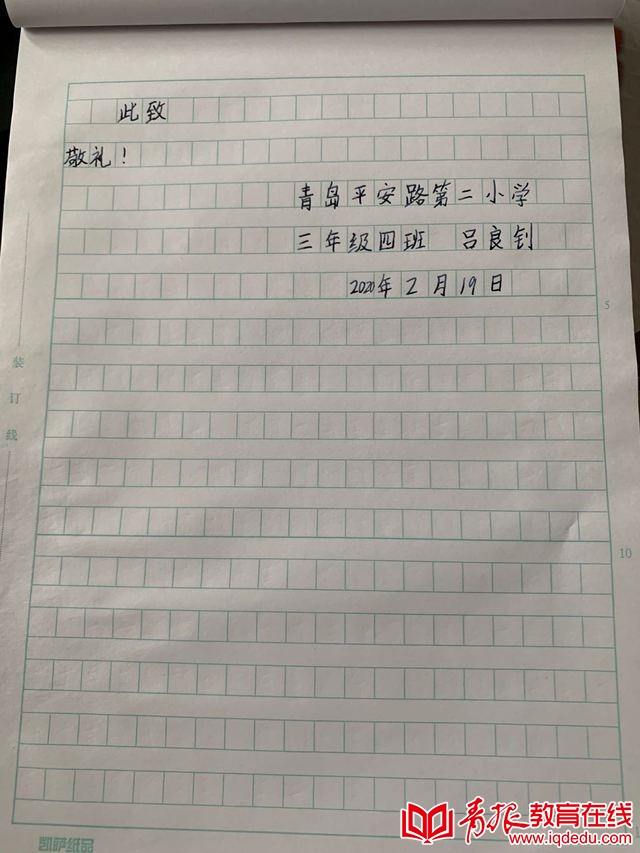 此致
敬礼！
青岛平安路第二小学
三年级四班 吕良钊
2020年2月19日
5
装订线
10
凯萨纸品
青报教育在线
www.iqdedu.com